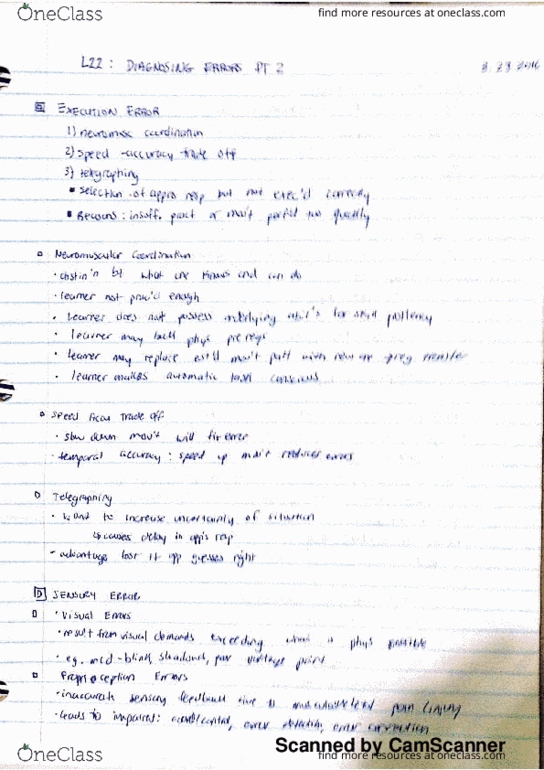 OneClass
find more resources at oneclass.com
L22 : DIAGNOSING ERRORS PT 2
3.29.2016
EXECUTION ERROR
1) neuromusc coordination
2) speed-accuracy trade off
3) telegraphing
selection of appro resp but not exec'd correctly
Reasons : insuff. pract or mov't perf'd too quickly
Neuromuscular Coordination
distin'n bt what one knows and can do
learner not prac'd enough
learner does not possess underlying abil's for skill
learner may lack phys prereqs
learner may replace mov't patt with new one
learner makes automatic task conscious
Speed Accu Trade off
slow down mov't will fix error
temporal accuracy : speed up mov't reduces errors
Telegraphing
want to increase uncertainty of situation
causes delay in opp's resp
advantage lost if opp guesses right
SENSORY ERROR
Visual Errors
result from visual demands exceeding what is phys possible
eg. mid-blink, poor vantage point
Proprioception Errors
inaccurate sensory feedback due to musculoskeletal
leads to impaired: control, error detection, error correction
Scanned by CamScanner
OneClass
find more resources at oneclass.com